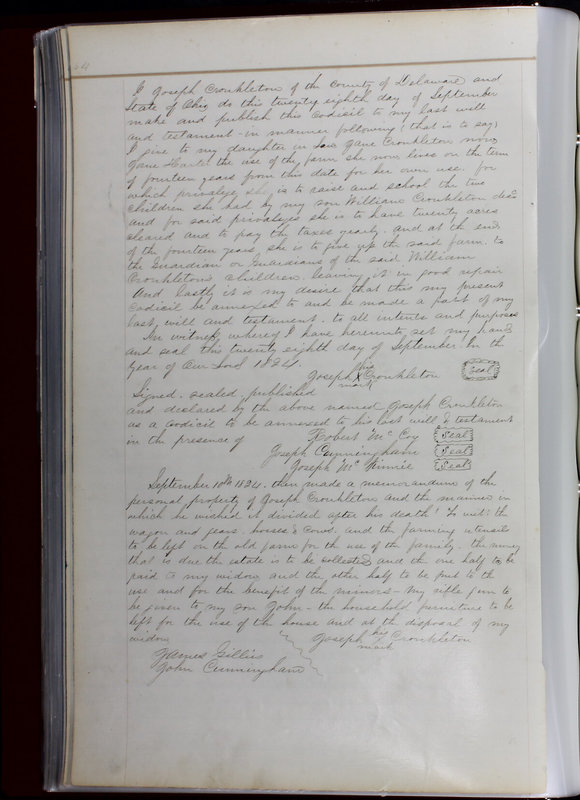 64
I Joseph Cronkleton of the County of Delaware and
State of Ohio do this twenty eighth day of September
make and publish this Codicil to my last will
and testament in manner following (that is to say)
I give to my daughter in law Jane Cronkleton now
Jane the use of the farm she now lives on the term
of fourteen years from this date for her own use, for
which privalege she is to raise and school the two
children she had by my son William Cronkleton decd
and for said privaleges she is to have twenty acres
cleared and to pay the taxes yearly. and at the end
of the fourteen years she is to give up the said farm to
the Guardian or Guardians of the said William
Cronkletons children. leaving it in good repair
And lastly it is my desire that this my present
Codicil be annexed to and be made a part of my
last will and testament. to all intents and purposes
In witness whereof I have hereunto set my hand
and seal this twenty eighth day of September in the
year of Our Lord 1824.
Joseph his X mark Cronkleton Seal
Signed, sealed, published
and declared by the above named Joseph Cronkleton
as a Codicil to be annexed to his last will & testament
in the presence of Robert Mc Coy Seal
Joseph Cunningham Seal
Joseph Mc Seal
September 10th 1824. then made a memorandum of the
personal property of Joseph Cronkleton and the manner in
which he wished it divided after his death! To wit: the
wagon and gears. horses & Cows and the farming utensils
to be left on the old farm for the use of the family. the money
that is due the estate is to be collected and the one half to be
paid to my widow and the other half to be put to the
use and for the benefit of the minors - My rifle gun to
be given to my son John - the household furniture to be
left for the use of the house and at the disposal of my
widow Joseph his mark Cronkleton
James Gillies
John Cunningham